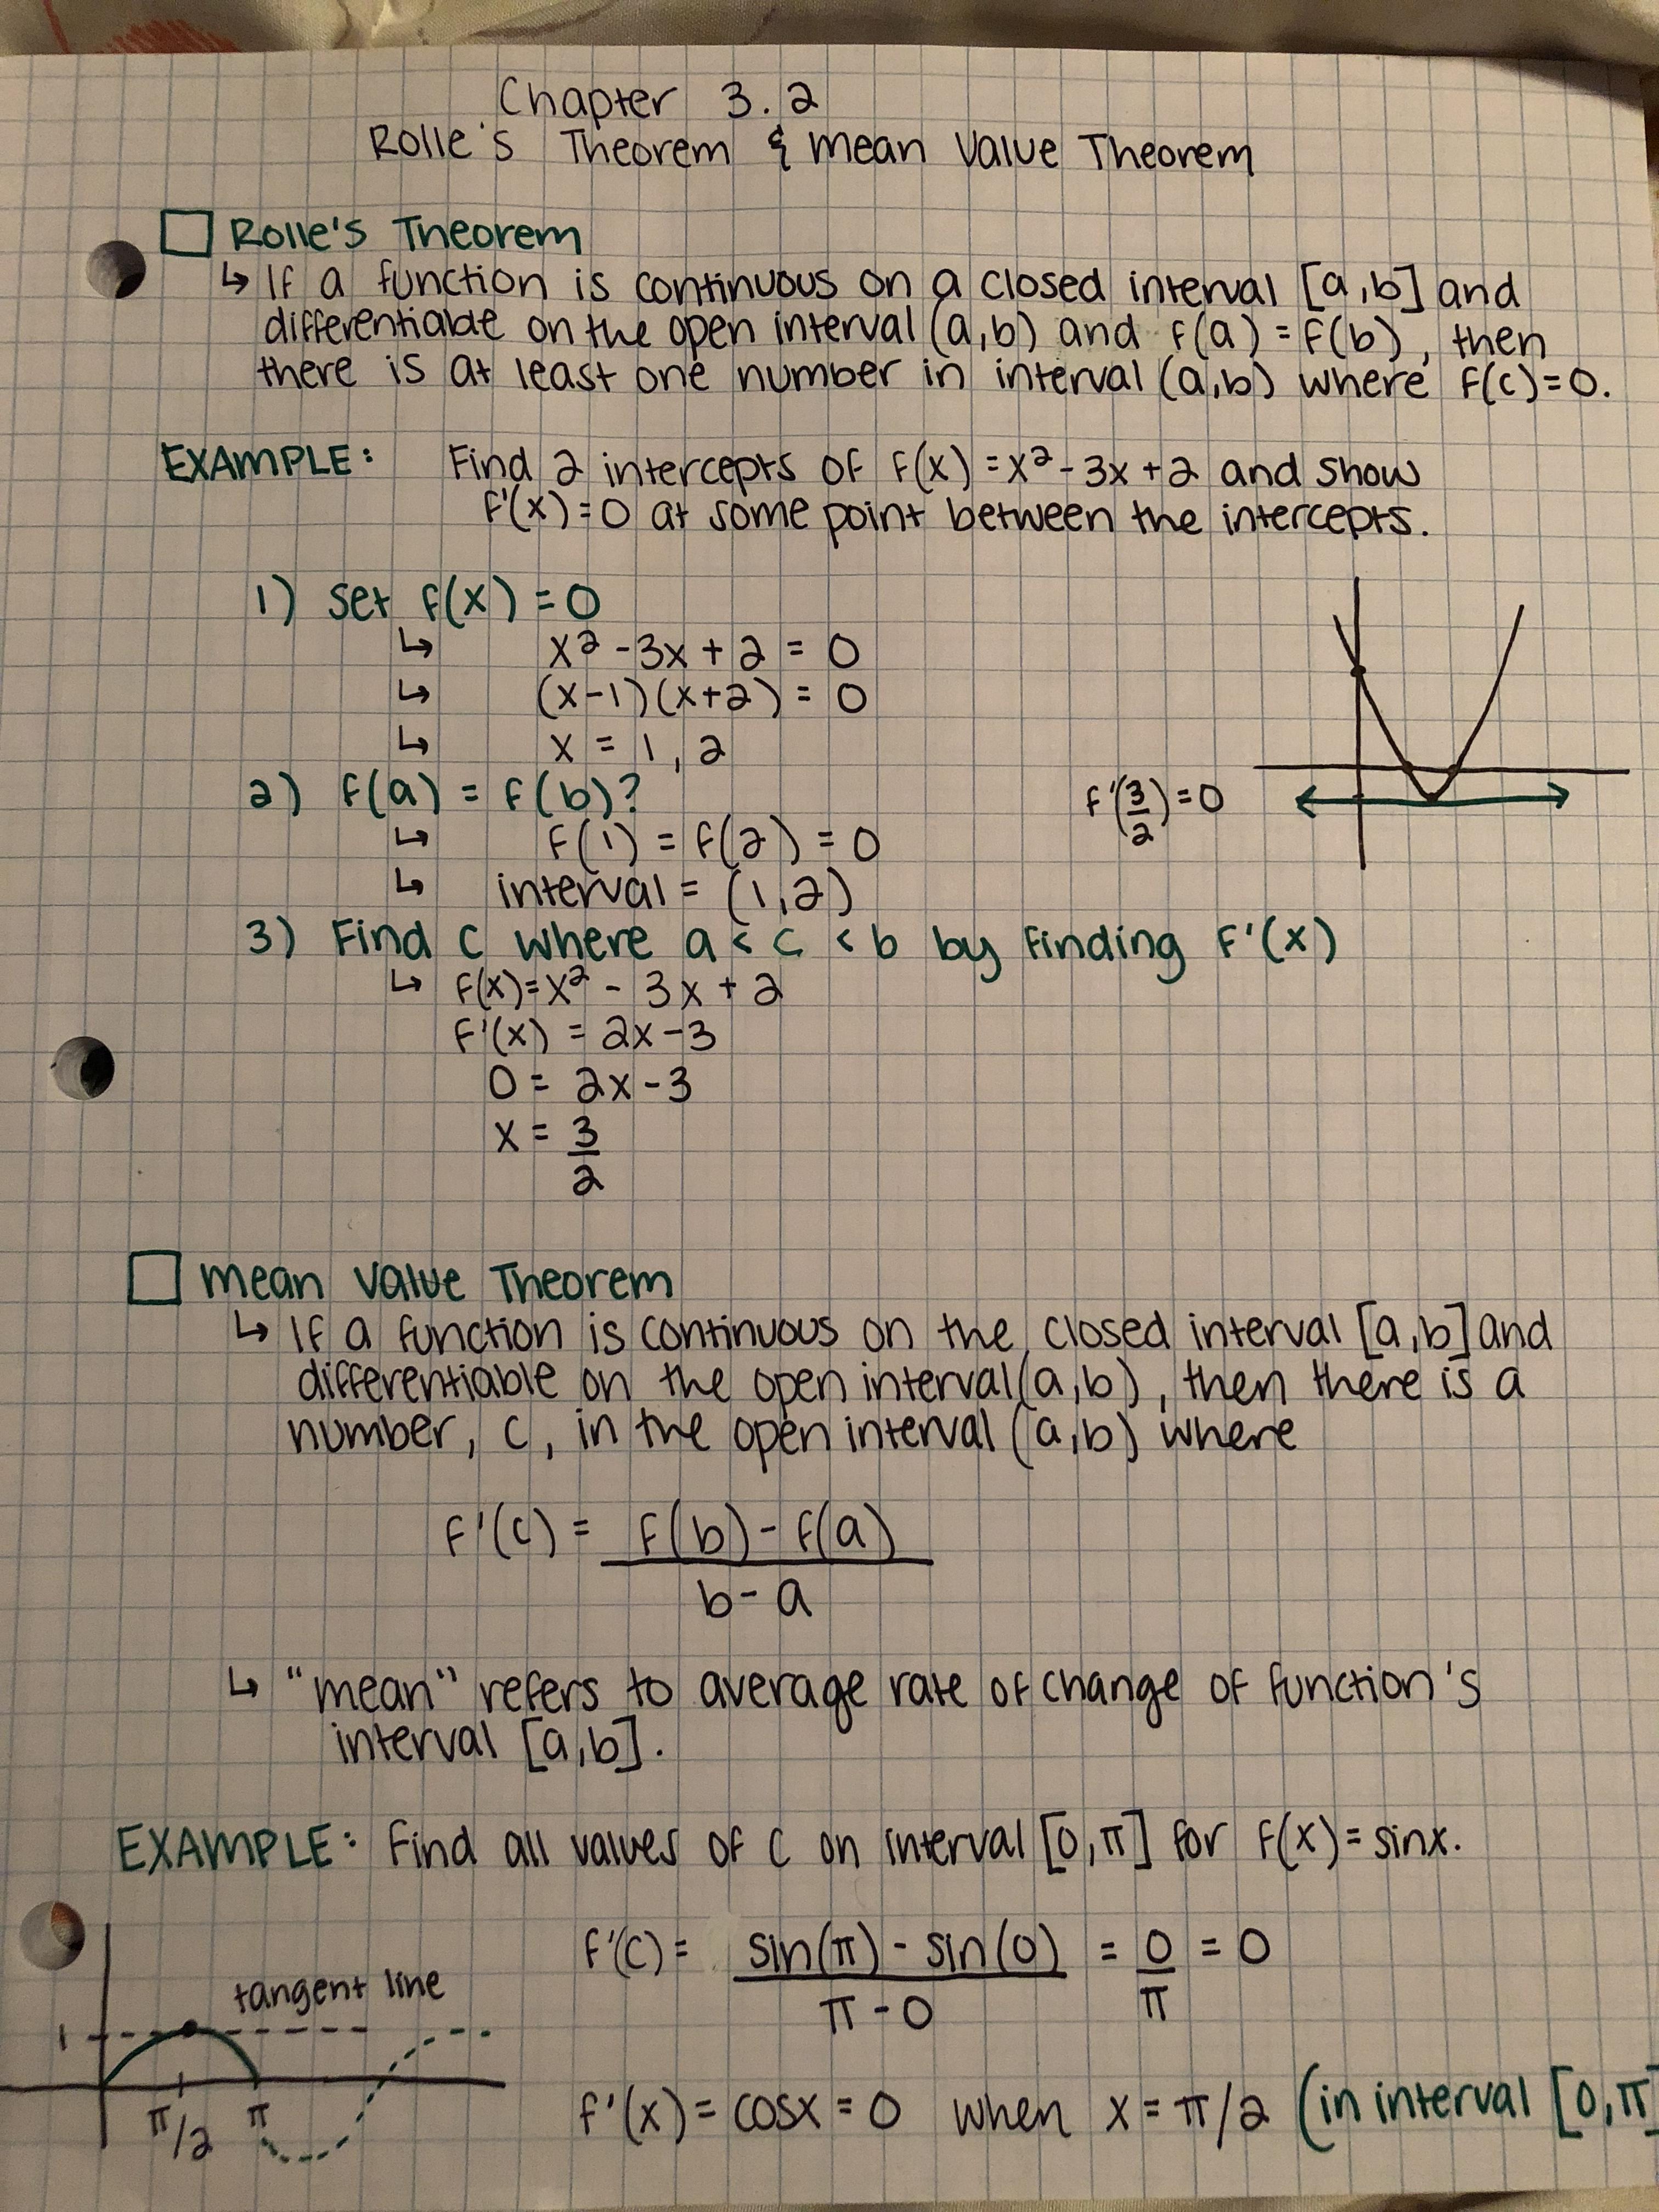 Chapter 3.2
Rolle's Theorem & Mean Value Theorem
Rolle's Theorem
↳ If a function is continuous on a closed interval [a,b] and
differentiable on the open interval (a,b) and f(a) = f(b), then
there is at least one number in interval (a,b) where f(c)=0.
EXAMPLE: Find 2 intercepts of f(x) = x² - 3x + 2 and show
f'(x) = 0 at some point between the intercepts.
1) Set f(x) = 0
↳ x² - 3x + 2 = 0
↳ (x-1)(x+2) = 0
↳ x = 1, 2
2) f(a) = f(b)?
f'(3/2) = 0
↳ f(1) = f(2) = 0
↳ interval = (1,2)
3) Find c where a < c < b by finding f'(x)
↳ f(x) = x² - 3x + 2
f'(x) = 2x - 3
0 = 2x - 3
x = 3/2
Mean Value Theorem
↳ If a function is continuous on the closed interval [a,b] and
differentiable on the open interval (a,b), then there is a
number, c, in the open interval (a,b) where
f'(c) = f(b) - f(a)
b - a
↳ "mean" refers to average rate of change of function's
interval [a,b].
EXAMPLE: Find all values of c on interval [0,π] for f(x) = sinx.
f'(c) = sin(π) - sin(0) = 0 = 0
π - 0 π
tangent line
1
π/2 π
f'(x) = cosx = 0 when x = π/2 (in interval [0,π]